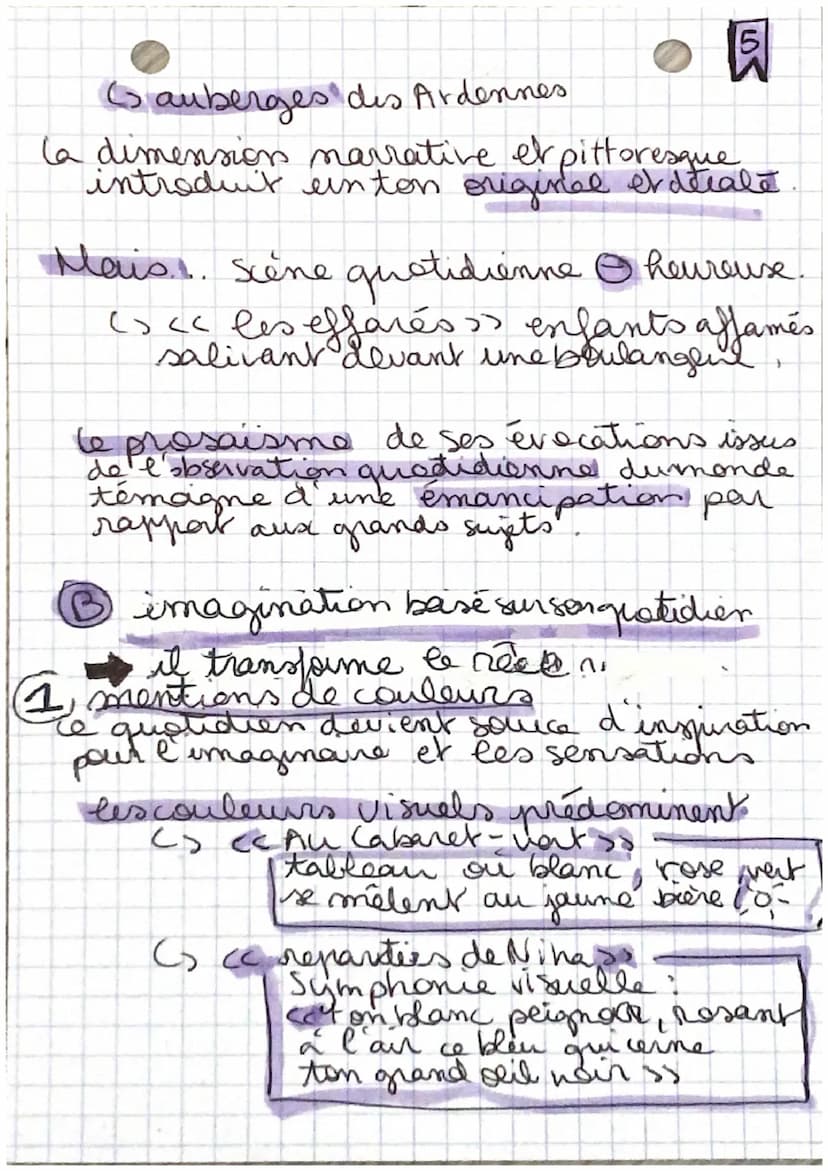 5
↳ auberges des Ardennes
La dimension narrative et pittoresque
introduit un ton original et décalé.
Mais... scène quotidienne ⊖ heureuse.
↳ << les effarés >> enfants affamés
salivant devant une boulangerie,
Le prosaïsme de ses évocations issus
de l'observation quotidienne du monde
témoigne d'une émancipation par
rapport aux grands sujets.
B imagination basé sur son quotidien
➡ il transforme le réel
1, mentions de couleurs
Le quotidien devient source d'inspiration
pour l'imaginaire et les sensations
les couleurs visuels prédominent
↳ << Au Cabaret-Vert >>
tableau où blanc, rose, vert
se mêlent au jaune bière
↳ << reparties de Nina >>
Symphonie visuelle :
<<Ton blanc peignoir, rosant
à l'air ce bleu qui cerne
ton grand œil noir >>